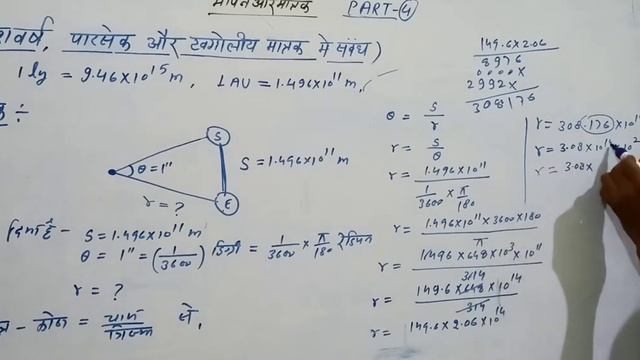 मापन और मात्रक PART-4
पारसेक और खगोलीय मात्रक में संबंध)
1 ly = 9.46×10¹⁵ m, 1AU = 1.496×10¹¹ m.
÷
S
θ = 1"
S = 1.496×10¹¹ m
E
r = ?
S = 1.496×10¹¹ m
θ = 1" = (1/3600) डिग्री = 1/3600 × π/180 रेडियन
r = ?
कोण = चाप/त्रिज्या से,
θ = S/r
r = S/θ
r = 1.496×10¹¹ / (1/3600 × π/180)
r = 1.496×10¹¹×3600×180 / π
r = 1.496×648×10³×10¹¹ / 3.14
r = 149.6×648×10¹⁴ / 3.14
r = 149.6×2.06×10¹⁴
149.6×2.06
8976
0000×
2992×
308176
r = 308.176×10¹
r = 3.08×10¹ ×10²
r = 3.08×